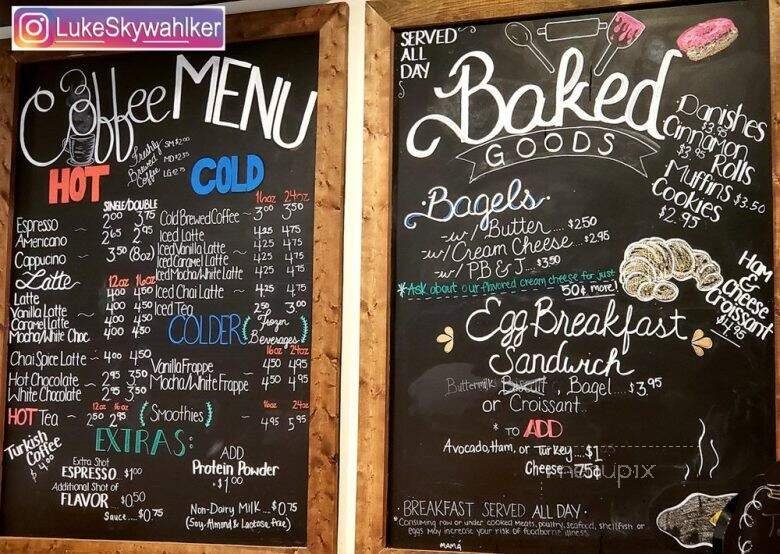 LukeSkywahlker
Coffee MENU
Freshly Brewed Coffee
SM $2.00
MD $2.35
LG $2.75
HOT
SINGLE/DOUBLE
Espresso ~ 2⁰⁰ 3⁷⁵
Americano 2⁶⁵ 2⁹⁵
Cappucino 3⁵⁰ (8oz)
Latte
12oz 16oz
Latte 4⁰⁰ 4⁵⁰
Vanilla Latte 4⁰⁰ 4⁵⁰
Caramel Latte 4⁰⁰ 4⁵⁰
Mocha/White Choc 4⁰⁰ 4⁵⁰
Chai Spice Latte - 4⁰⁰ 4⁵⁰
Hot Chocolate ~ 2⁹⁵ 3⁵⁰
White Chocolate 2⁹⁵ 3⁵⁰
12oz 16oz
HOT Tea ~ 2⁵⁰ 2⁹⁵
Turkish Coffee
$4.00
COLD
16oz 24oz
Cold Brewed Coffee ~ 3⁰⁰ 3⁵⁰
Iced Latte 4²⁵ 4⁷⁵
Iced Vanilla Latte 4²⁵ 4⁷⁵
Iced Caramel Latte 4²⁵ 4⁷⁵
Iced Mocha/White Latte 4²⁵ 4⁷⁵
Iced Chai Latte ~ 4²⁵ 4⁷⁵
Iced Tea 2⁵⁰ 3⁰⁰
COLDER (Frozen Beverages)
16oz 24oz
Vanilla Frappe 4⁵⁰ 4⁹⁵
Mocha/White Frappe 4⁵⁰ 4⁹⁵
16oz 24oz
(Smoothies) 4⁹⁵ 5⁹⁵
EXTRAS:
Extra Shot
ESPRESSO $1⁰⁰
Additional Shot of
FLAVOR $0⁵⁰
Sauce.... $0.75
ADD
Protein Powder
· $1.⁰⁰
Non-Dairy Milk...$0⁷⁵
(Soy, Almond & Lactose free)
SERVED
ALL
DAY
Baked
GOODS
Danishes
$3.95
Cinnamon Rolls
$3.95
Muffins $3.50
Cookies
$2.95
· Bagels ·
-w/ Butter... $2⁵⁰
-w/ Cream Cheese... $2.95
-w/ PB & J... $3⁵⁰
*Ask about our flavored cream cheese for just
50¢ more!
Ham
&
Cheese
Croissant
$4.95
Egg Breakfast
Sandwich
Buttermilk Biscuit, Bagel....$3.95
or Croissant..
* TO ADD
Avocado, Ham, or Turkey....$1
Cheese...75¢
menupix
· BREAKFAST SERVED ALL DAY ·
*Consuming raw or under cooked meats, poultry, seafood, shellfish or
eggs may increase your risk of foodborne illness.
MAMÁ